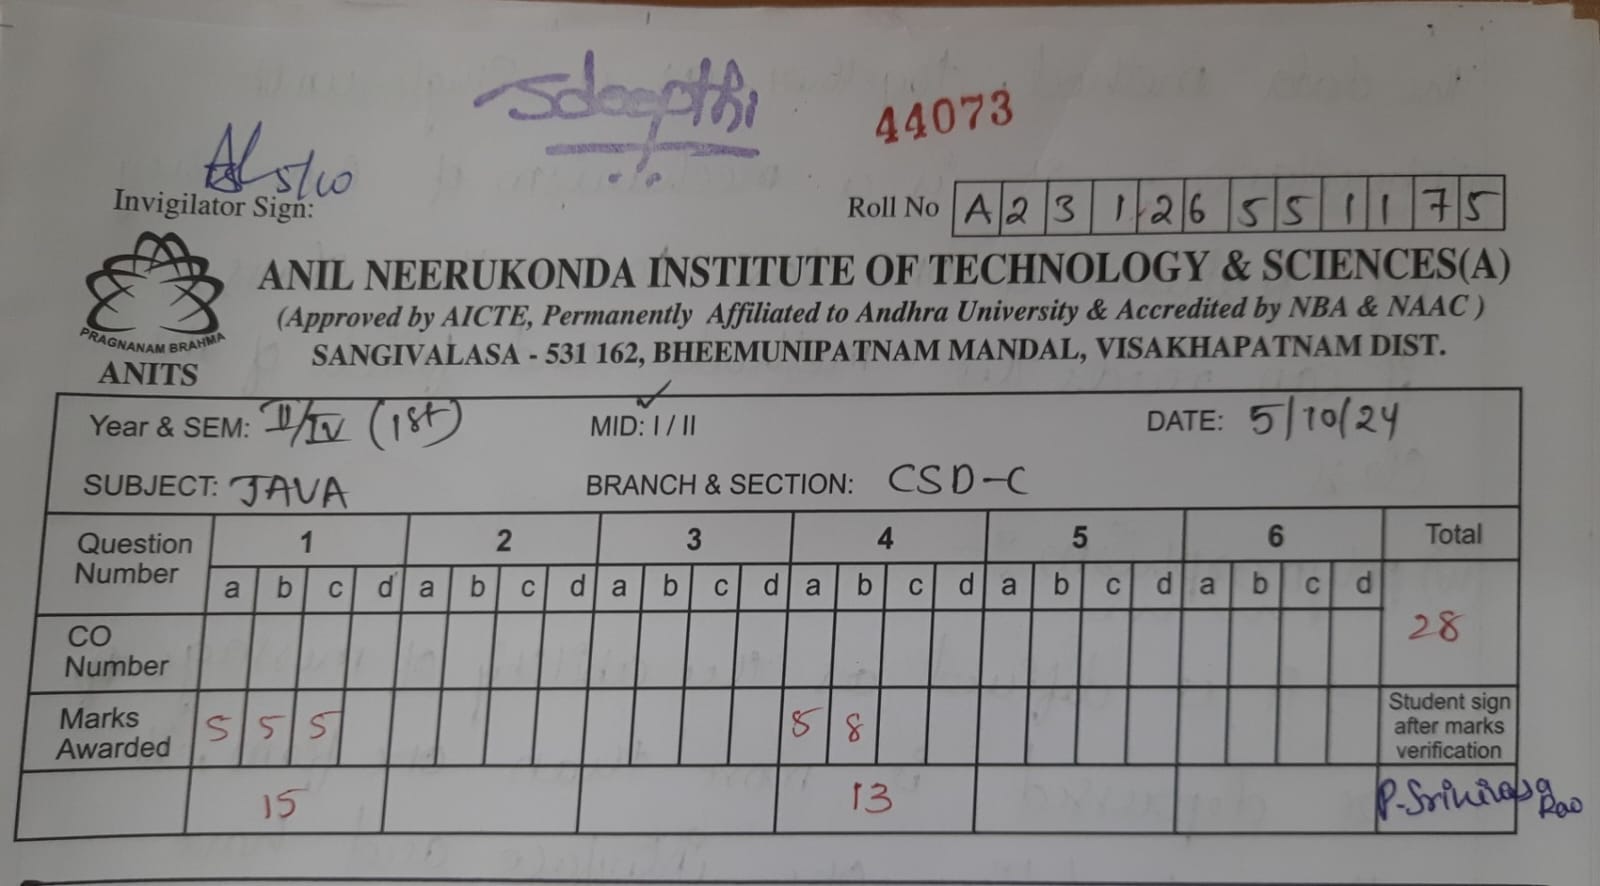 Sdeepthi
44073
5/10
Invigilator Sign:
Roll No A 2 3 1 2 6 5 5 1 1 7 5
PRAGNANAM BRAHMA
ANITS
ANIL NEERUKONDA INSTITUTE OF TECHNOLOGY & SCIENCES(A)
(Approved by AICTE, Permanently Affiliated to Andhra University & Accredited by NBA & NAAC )
SANGIVALASA - 531 162, BHEEMUNIPATNAM MANDAL, VISAKHAPATNAM DIST.
Year & SEM: II/IV (1st) MID: I / II DATE: 5/10/24
SUBJECT: JAVA BRANCH & SECTION: CSD-C
Question Number 1 2 3 4 5 6 Total
a b c d a b c d a b c d a b c d a b c d a b c d
CO Number 28
Marks Awarded 5 5 5 5 8
Student sign
after marks
verification
15 13 P-Srinivasa
Rao